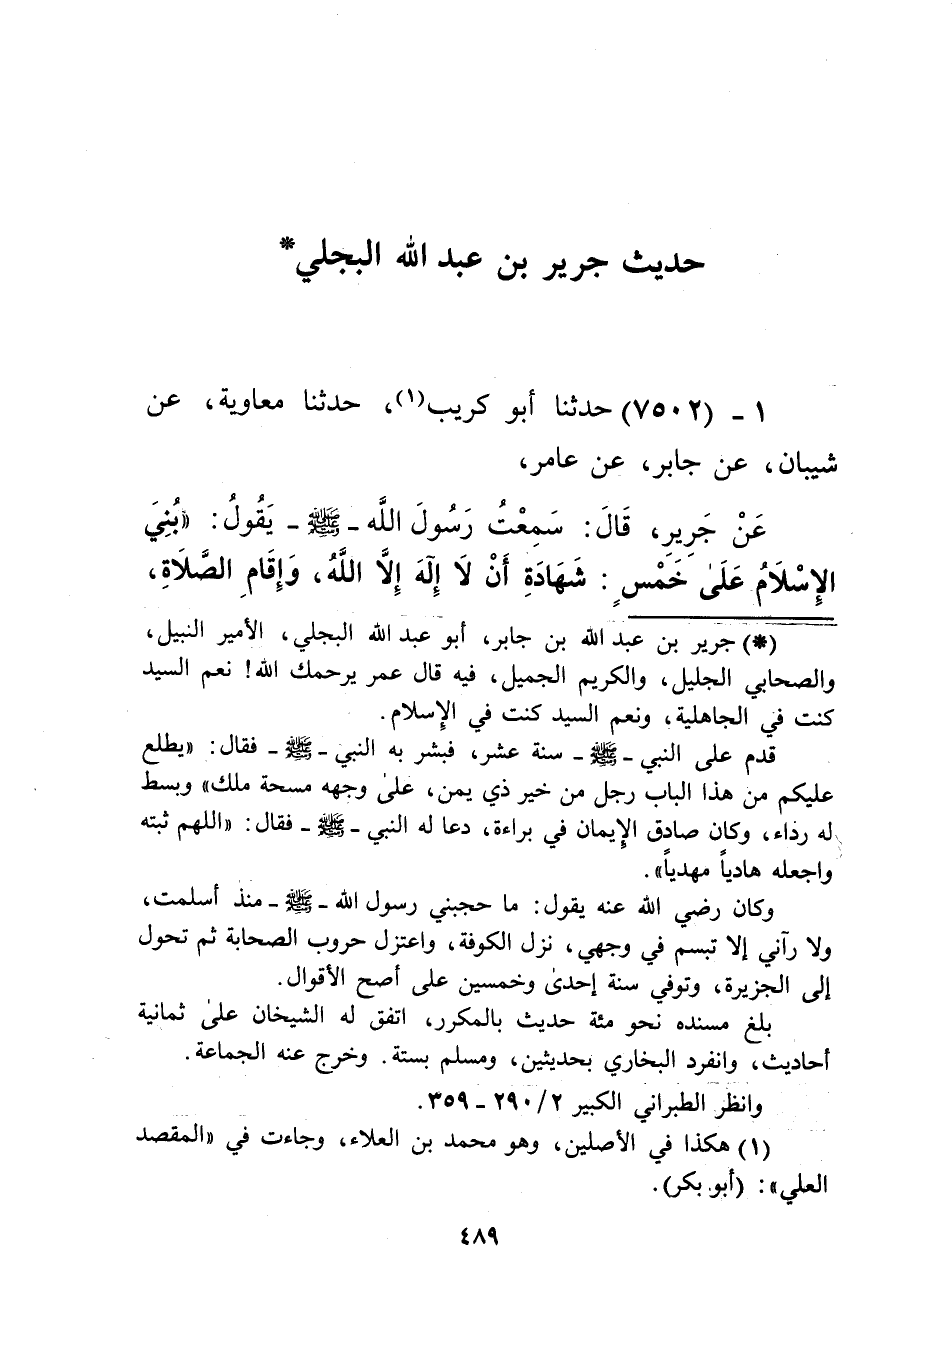 حديث جرير بن عبد الله البجلي*
١ ـ (٧٥٠٢) حدثنا أبو كريب(١)، حدثنا معاوية، عن
شيبان، عن جابر، عن عامر،
عَنْ جَرِيرٍ، قَالَ: سَمِعْتُ رَسُولَ اللَّه ـ ﷺ ـ يَقُولُ: «بُنِيَ
الإِسْلَامُ عَلَىٰ خَمْسٍ: شَهَادَةِ أَنْ لَا إِلَهَ إِلَّا اللَّهُ، وَإِقَامِ الصَّلَاةِ،
(*) جرير بن عبد الله بن جابر، أبو عبد الله البجلي، الأمير النبيل،
والصحابي الجليل، والكريم الجميل، فيه قال عمر يرحمك الله! نعم السيد
كنت في الجاهلية، ونعم السيد كنت في الإسلام.
قدم على النبي ـ ﷺ ـ سنة عشر، فبشر به النبي ـ ﷺ ـ فقال: «يطلع
عليكم من هذا الباب رجل من خير ذي يمن، علىٰ وجهه مسحة ملك» وبسط
له رداء، وكان صادق الإيمان في براءة، دعا له النبي ـ ﷺ ـ فقال: «اللهم ثبته
واجعله هادياً مهدياً».
وكان رضي الله عنه يقول: ما حجبني رسول الله ـ ﷺ ـ منذ أسلمت،
ولا رآني إلا تبسم في وجهي، نزل الكوفة، واعتزل حروب الصحابة ثم تحول
إلى الجزيرة، وتوفي سنة إحدىٰ وخمسين على أصح الأقوال.
بلغ مسنده نحو مئة حديث بالمكرر، اتفق له الشيخان علىٰ ثمانية
أحاديث، وانفرد البخاري بحديثين، ومسلم بستة. وخرج عنه الجماعة.
وانظر الطبراني الكبير ٢/ ٢٩٠ ـ ٣٥٩.
(١) هكذا في الأصلين، وهو محمد بن العلاء، وجاءت في «المقصد
العلي»: (أبو بكر).
٤٨٩